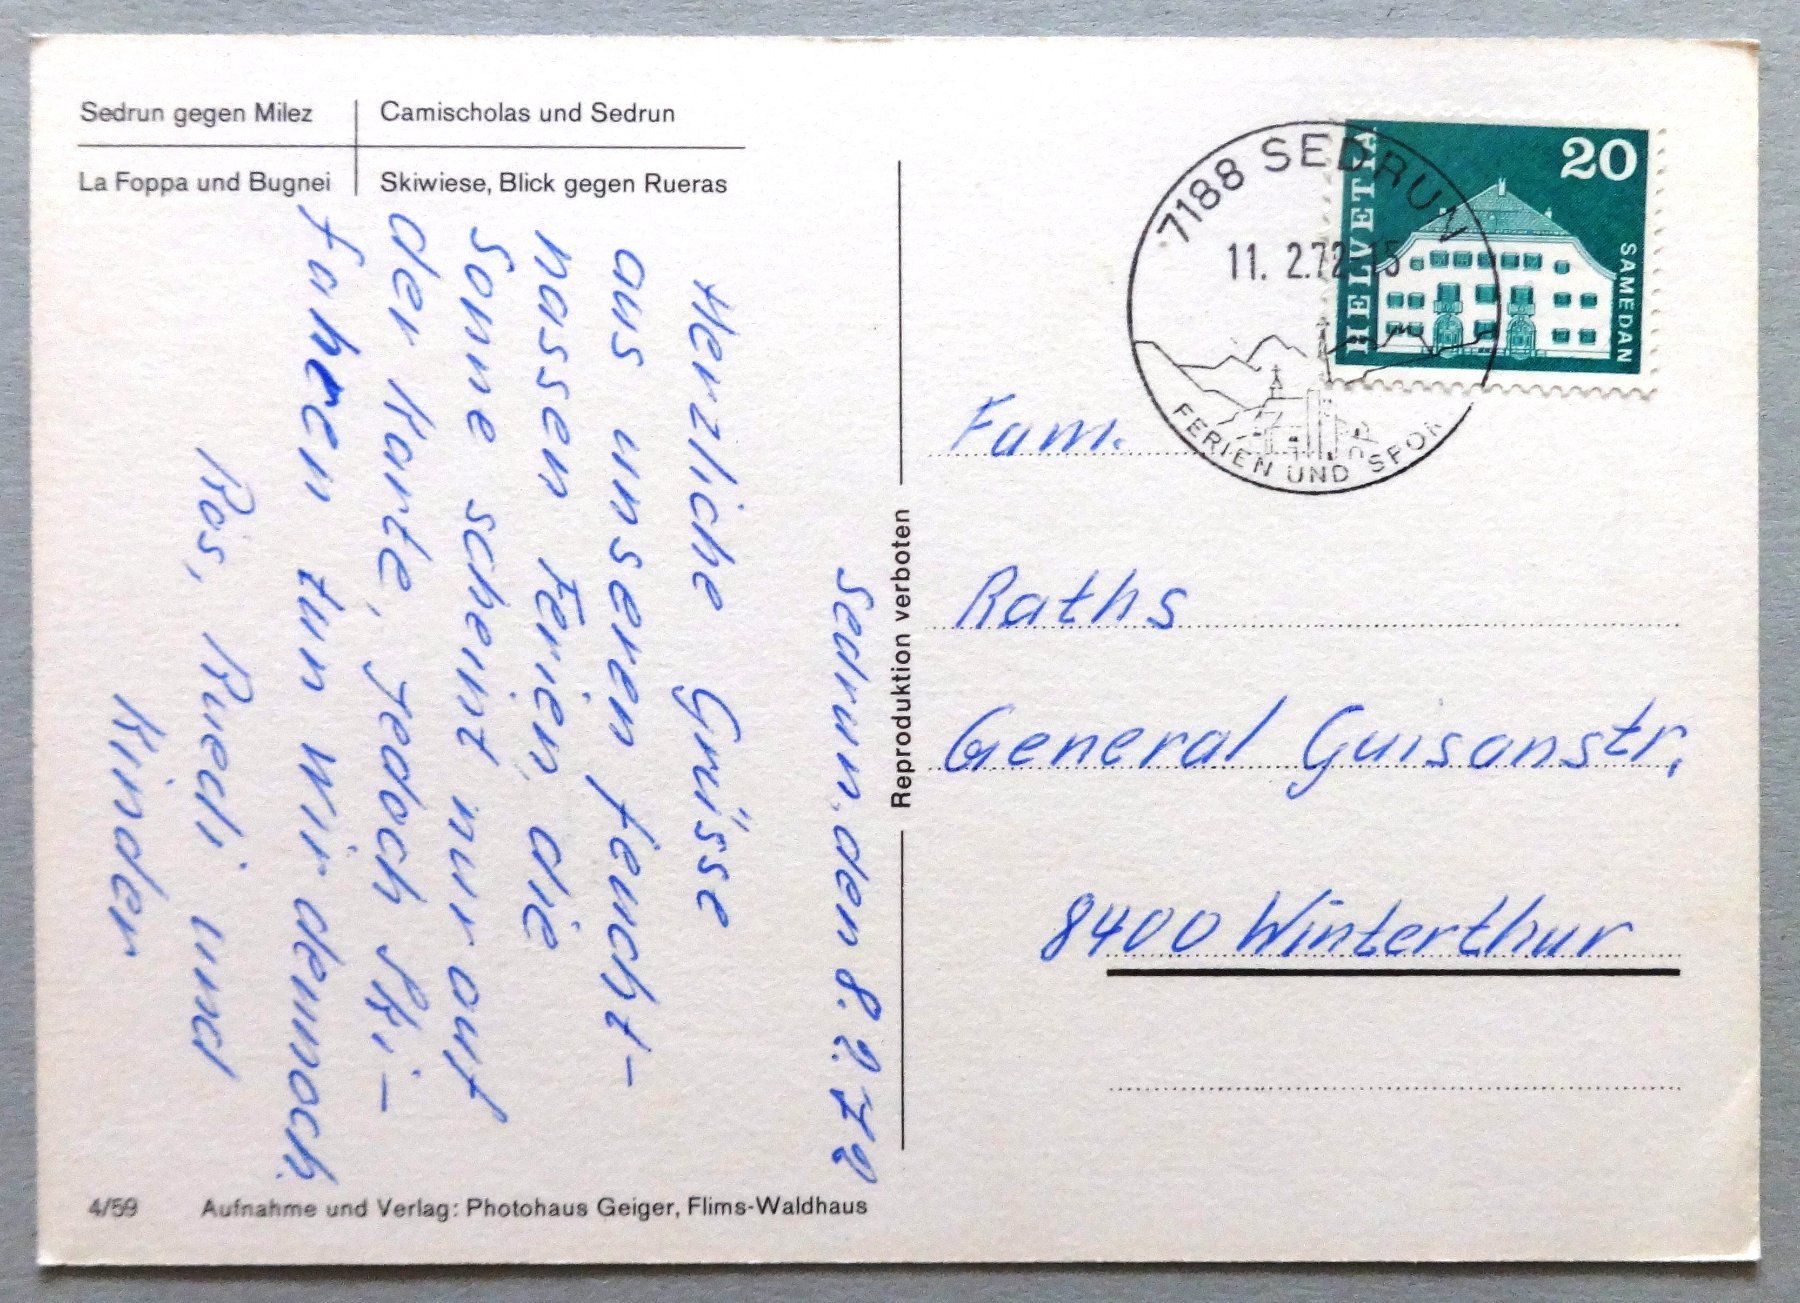 Sedrun gegen Milez
Camischolas und Sedrun
La Foppa und Bugnei
Skiwiese, Blick gegen Rueras
Sedrun, den 8.2.72
Herzliche Grüsse
aus unseren feucht-
nassen Ferien, die
Sonne scheint nur auf
der Karte, jedoch Ski-
fahren tun wir dennoch.
Rös, Ruedi und
Kinder
4/59
Aufnahme und Verlag: Photohaus Geiger, Flims-Waldhaus
Reproduktion verboten
7188 SEDRUN
11. 2.72-15
FERIEN UND SPOR
HELVETIA
20
SAMEDAN
Fam.
Raths
General Guisanstr.
8400 Winterthur